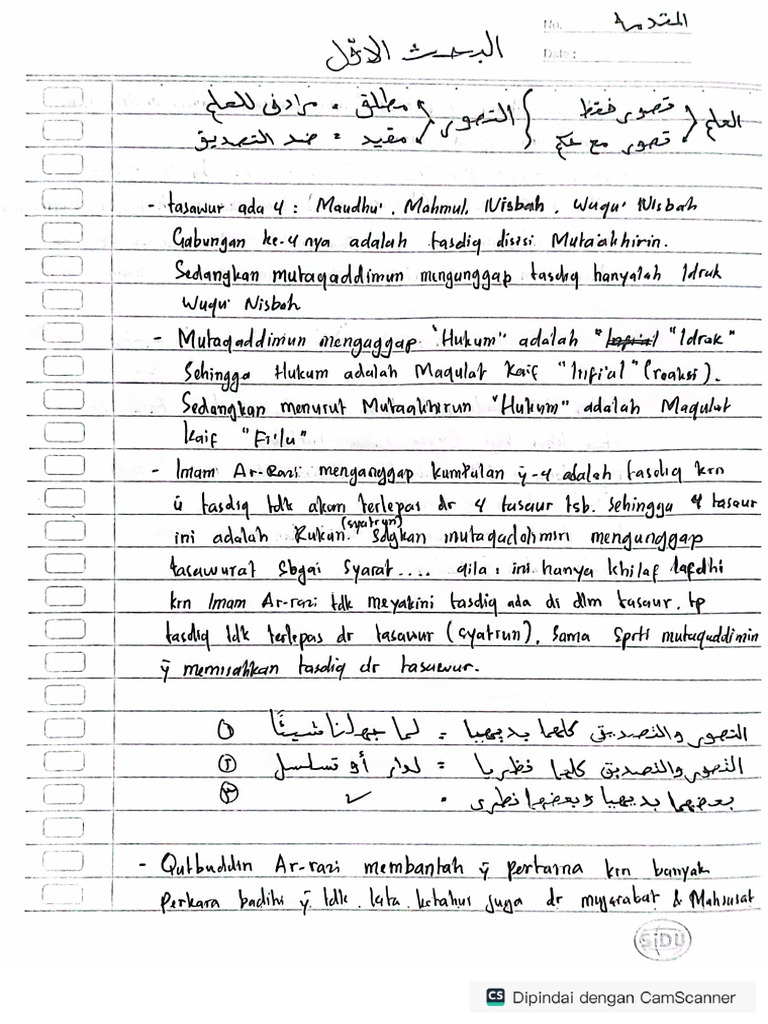 No. المقدمة
Date :
البحث الاوّل
العلم { تصور فقط } التصور { مطلق = مرادف للعلم
تصور مع حكم مقيد = ضد التصديق
- tasawur ada 4 : Maudhu', Mahmul, Nisbah, Wuqu' Nisbah
Gabungan ke-4 nya adalah tasdiq disisi Mutaakhirin.
Sedangkan mutaqaddimun mengunggap tasdiq hanyalah Idrak
Wuqu' Nisbah
- Mutaqaddimun mengaggap "Hukum" adalah "Idrak"
Sehingga Hukum adalah Maqulat Kaif "Infi'al" (reaksi).
Sedangkan menurut Mutaakhirun "Hukum" adalah Maqulat
Kaif "Fi'lu"
- Imam Ar-Razi menganggap kumpulan ÿ-4 adalah tasdiq krn
ü tasdiq tdk akan terlepas dr 4 tasaur tsb. Sehingga 4 tasaur
ini adalah Rukun. (syatrun) Sdgkan mutaqaddimin mengunggap
tasawurat sbgai Syarat.... qila : ini hanya khilaf lafdhi
krn Imam Ar-razi tdk meyakini tasdiq ada di dlm tasaur, tp
tasdiq tdk terlepas dr tasawur (syatrun), Sama Sprti mutaqaddimin
ÿ memisahkan tasdiq dr tasawur.
التصور والتصديق كلهما بديهيا = لما جهلنا شيئًا ①
التصور والتصديق كلهما نظريا = لدار أو تسلسل ②
بعضهما بديهيا وبعضهما نظرى = ✓ ③
- Qutbuddin Ar-razi membantah ÿ pertama krn banyak
Perkara badihi ÿ tdk kita ketahui juga dr mujarabat & Mahsusat
SiDU
CS Dipindai dengan CamScanner